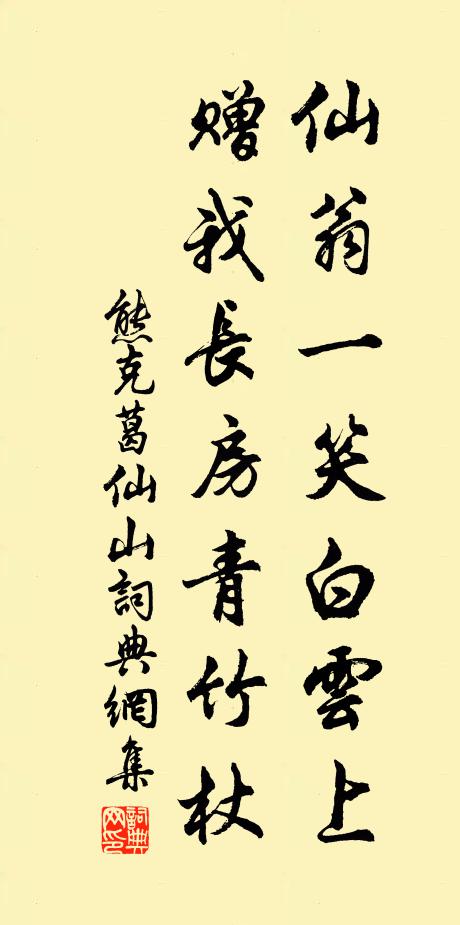 仙翁一笑白雲上
贈我長房青竹杖
熊克葛仙山詞典網集
詞典网印